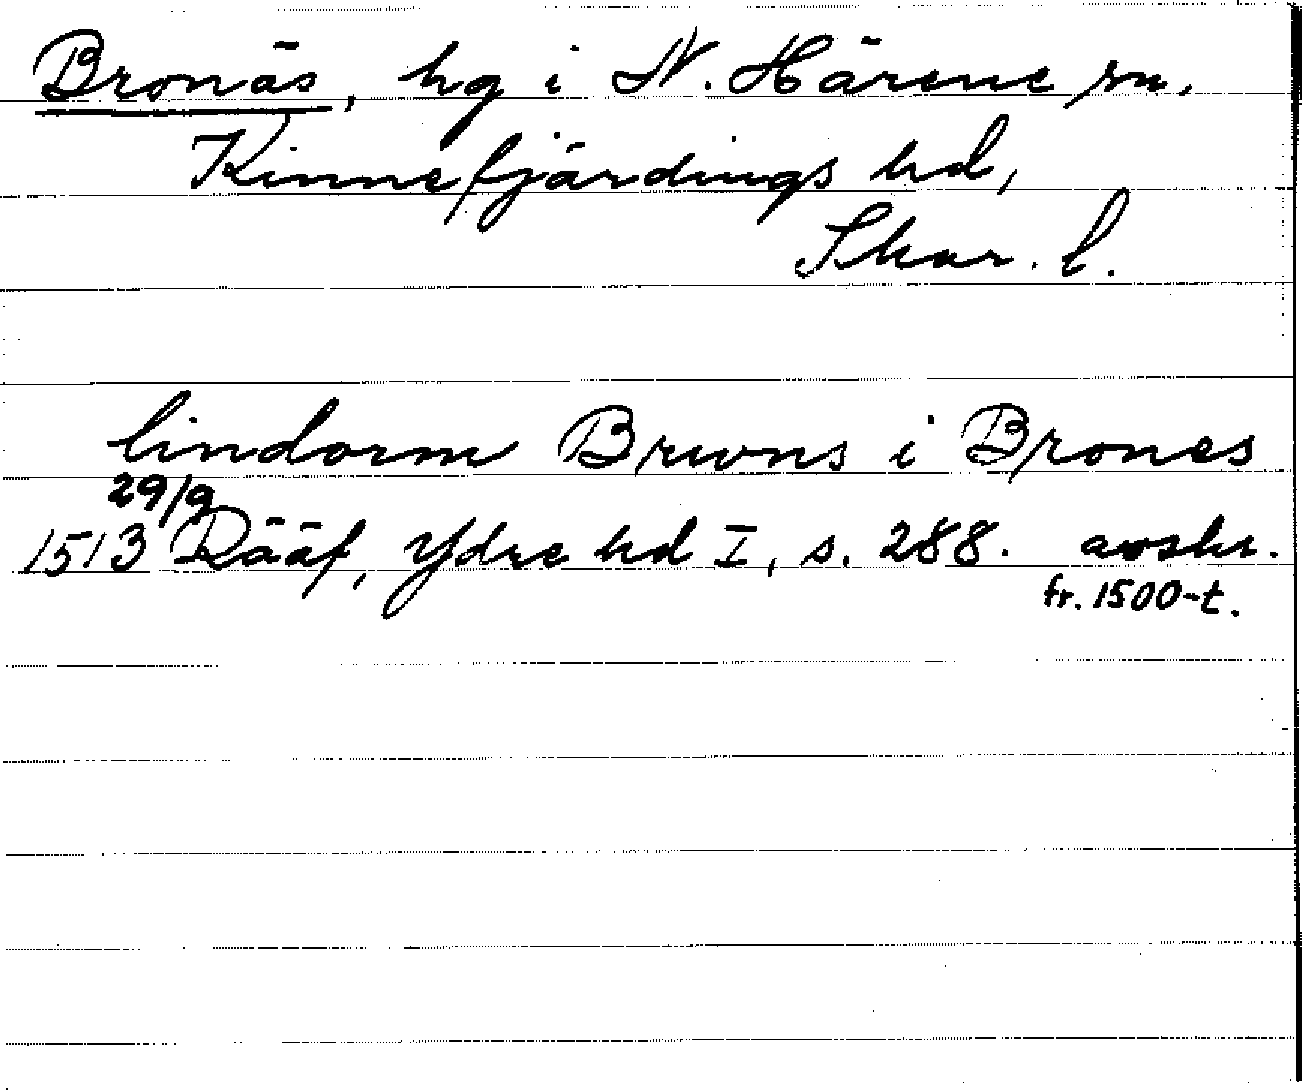 Bronäs, hg i N. Härene sn.
Kinnefjärdings hd,
Skar. l.
lindorm Brwns i Brones
29/9
1513 Rääf, Ydre hd I, s. 288. avskr.
fr. 1500-t.